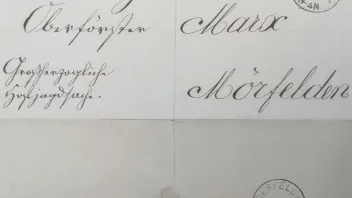 Oberförster Marx
Großherzogliche
Hofjagdsache. Mörfelden
4N